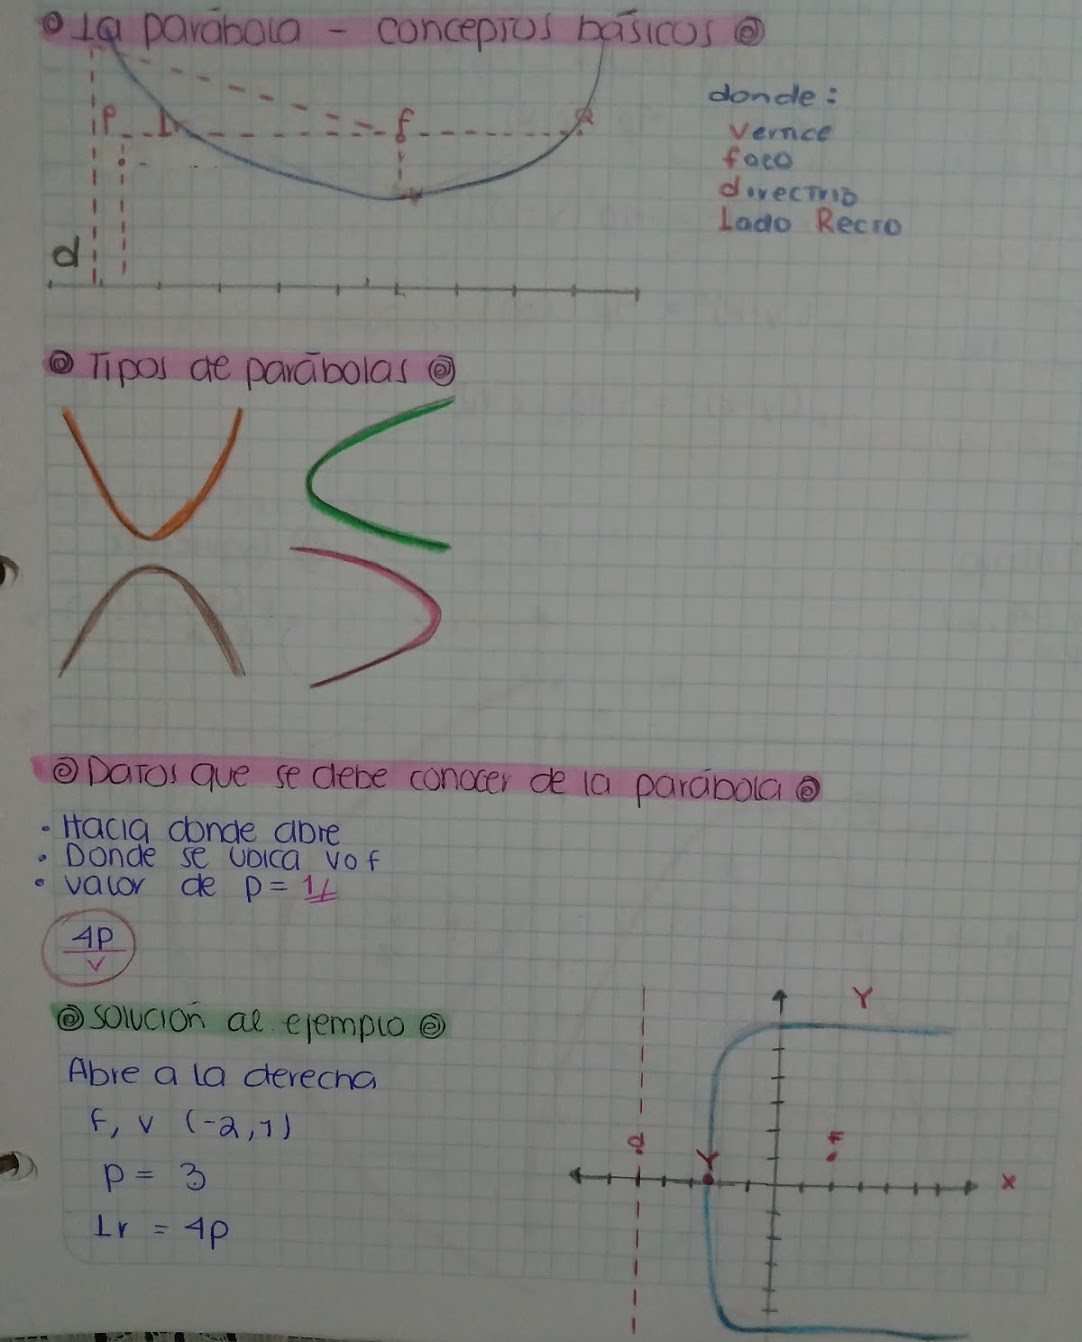 La parábola - conceptos básicos
donde:
P L f R
Vertice
foco
directriz
Lado Recto
V
d
Tipos de parábolas
Datos que se debe conocer de la parábola
• Hacia donde abre
• Donde se ubica v o f
• valor de p =
4P
v
Solución al ejemplo
Y
Abre a la derecha
f, v (-2,1)
d
F
V
X
p = 3
Lr = 4p